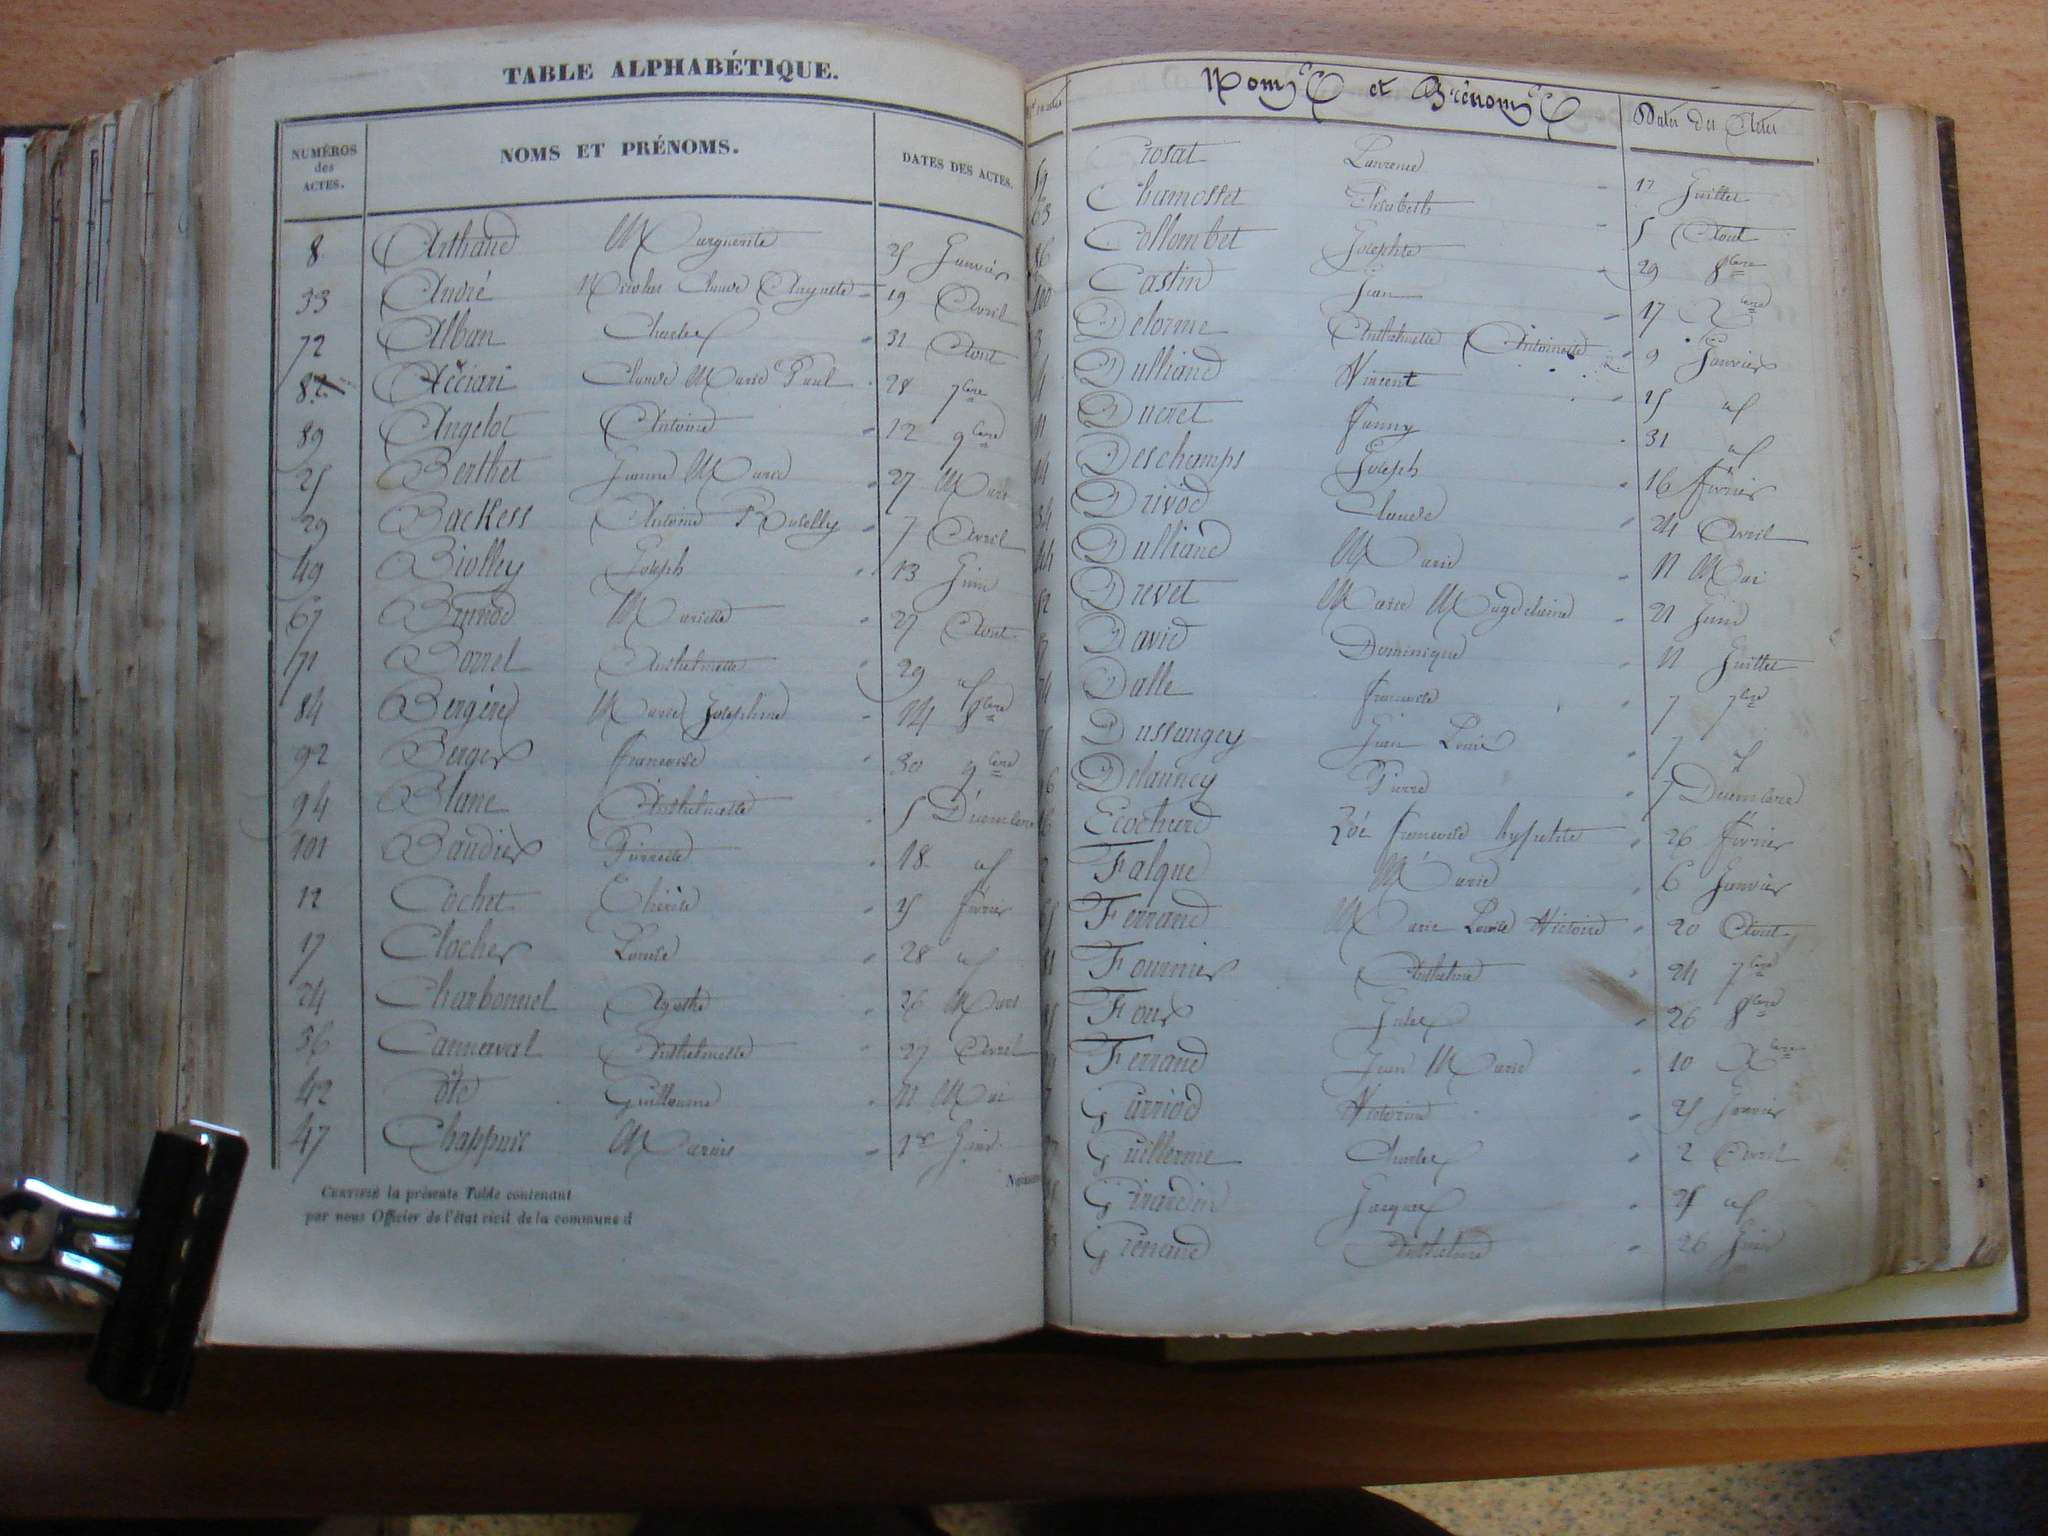 TABLE ALPHABÉTIQUE.
NUMÉROS des ACTES. NOMS ET PRÉNOMS. DATES DES ACTES.
8 Arthaud Marguerite 25 Janvier
33 André Nicolas Claude Auguste 19 Avril
72 Alban Charles 31 Aout
82 Acciari Claude Marie Paul 28 7bre
89 Angelot Antoine 12 9bre
25 Berthet Jeanne Marie 27 Mars
29 Backess Antoine 7 Avril
49 Biolley Joseph 13 Juin
67 Brunod Mariette 27 Aout
71 Borrel Anthelmette 29 id
84 Bergère Marie Joséphine 14 8bre
92 Berger francoise 30 9bre
94 Blanc Anthelmette 5 Décembre
101 Baudier Pierrette 18 id
12 Cochet Thérèse 15 février
17 Clocher Louise 28 id
24 Charbonnel Agathe 26 Mars
36 Cannaval Anthelmette 27 Avril
42 Côte Guillaume 11 Mai
47 Chappuis Marius 1er Juin
CERTIFIÉ la présente Table contenant
par nous Officier de l'état civil de la commune d
Noms et Prénoms Dates des Actes
Crosat Laurence 17 Juillet
63 Chamosset Elisabeth 5 Aout
86 Collombet Josephte 29 8bre
100 Castin Jean 17 Xbre
3 Delorme Anthelmette Antoinette 9 Janvier
Dulliand Vincent 25 id
11 Ducret fanny 31 id
14 Deschamps Joseph 16 février
34 Drivod Claude 24 Avril
44 Dulliand Marie 11 Mai
52 Drevet Marie Magdelaine 21 Juin
David Dominique 11 Juillet
74 Dalle francoise 7 7bre
Dussangey Jean Louis 7 id
96 Delauncy Pierre 7 Décembre
16 Ecochard Zoé francoise 26 février
2 Falque Marie 6 Janvier
Ferrand Marie Louise Victoire 20 Aout
81 Fournier Anthelme 24 7bre
85 Four Jules 26 8bre
Ferrand Jean Marie 10 Xbre
7 Garriod Victorine 25 Janvier
27 Guillerme Charles 2 Avril
Girardin Jacques 25 id
Grenaud Anthelme 26 Juin